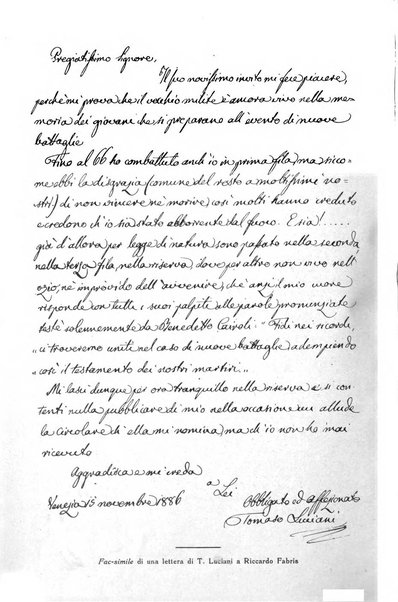 Pregiatissimo Signore,
Il suo novissimo invito mi fece piacere,
perchè mi prova che il vecchio milite è ancora vivo nella me-
moria dei giovani che si preparano all'evento di nuove
battaglie
Fino al 66 ho combattuto anch'io in prima fila, ma sicco-
me ebbi la disgrazia (comune del resto a moltissimi no-
stri) di non vincere nè morire, così molti hanno creduto
e credono ch'io sia stato abborrente dal fuoco. E sia!......
già d'allora per legge di natura sono passato nella seconda
nella terza fila, nella riserva, dove per altro non vivo nell'
ozio, nè improvido dell'avvenire, chè anzi il mio cuore
risponde con tutti i suoi palpiti alle parole pronunziate
testè solennemente da Benedetto Cairoli. "Fidi nei ricordi,
"ci troveremo uniti nel caso di nuove battaglie adempiendo
"così il testamento dei nostri martiri."
Mi lasci dunque per ora tranquillo nella riserva e si con-
tenti nulla pubblicare di mio nella occasione cui allude
la circolare ch'ella mi nomina, ma ch'io non ho mai
ricevuto
Aggradisca e mi creda
a Lei
Venezia 15 novembre 1886
Obbligato ed affezionato
Tomaso Luciani
Fac-simile di una lettera di T. Luciani a Riccardo Fabris